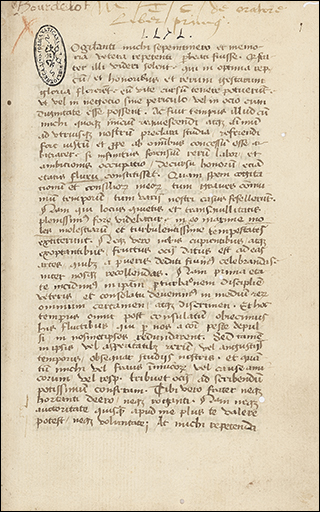 Bourdelot
M T C de oratore
Liber primus
Cogitanti michi sepenumero et memo
ria vetera repetenti perbeati fuisse Quinte
frater illi videri solent qui in optima rep
cum et honoribus et rerum gestarum
gloria florerent eum vite cursum tenere potuerunt
ut vel in negocio sine periculo vel in ocio cum
dignitate esse possent Ac fuit tempus illud cum
michi quoque inicium requiescendi atque animum
ad utriusque nostrum preclara studia referendi
fore iustum et prope ab omnibus concessum esse ar
bitrarer si infinitus forensium rerum labor et
ambitionis occupatio decursu honorum etiam
etatis flexu constitisset Quam spem cogita
tionum et consiliorum meorum tum graves commu
nium temporum tum varii nostri casus fefellerunt
Nam qui locus quietis et tranquillitatis
plenissimus fore videbatur in eo maxime mo
les molestiarum et turbulentissime tempestates
extiterunt Neque vero nobis cupientibus atque
exoptantibus fructus ocii datus est ad eas
artes quibus a pueris dediti fuimus celebrandas
inter nosque recolendas Nam prima eta
te incidimus in ipsam perturbationem discipline
veteris et consulatu devenimus in medium rerum
omnium certamen atque discrimen Et hoc
tempus omne post consulatum obiecimus
his fluctibus qui per nos a communi peste depul
si in nosmetipsos redundarent Sed tamen
in ipsis vel asperitatibus rerum vel angustiis
temporis obsequar studiis nostris et quan
tum michi vel fraus inimicorum vel cause ami
corum vel resp. tribuet ocii ad scribendum
potissimum conferam Tibi vero frater neque
hortanti deero neque roganti Nam neque
auctoritate quisquam apud me plus te valere
potest neque voluntate; Ac michi repetenda